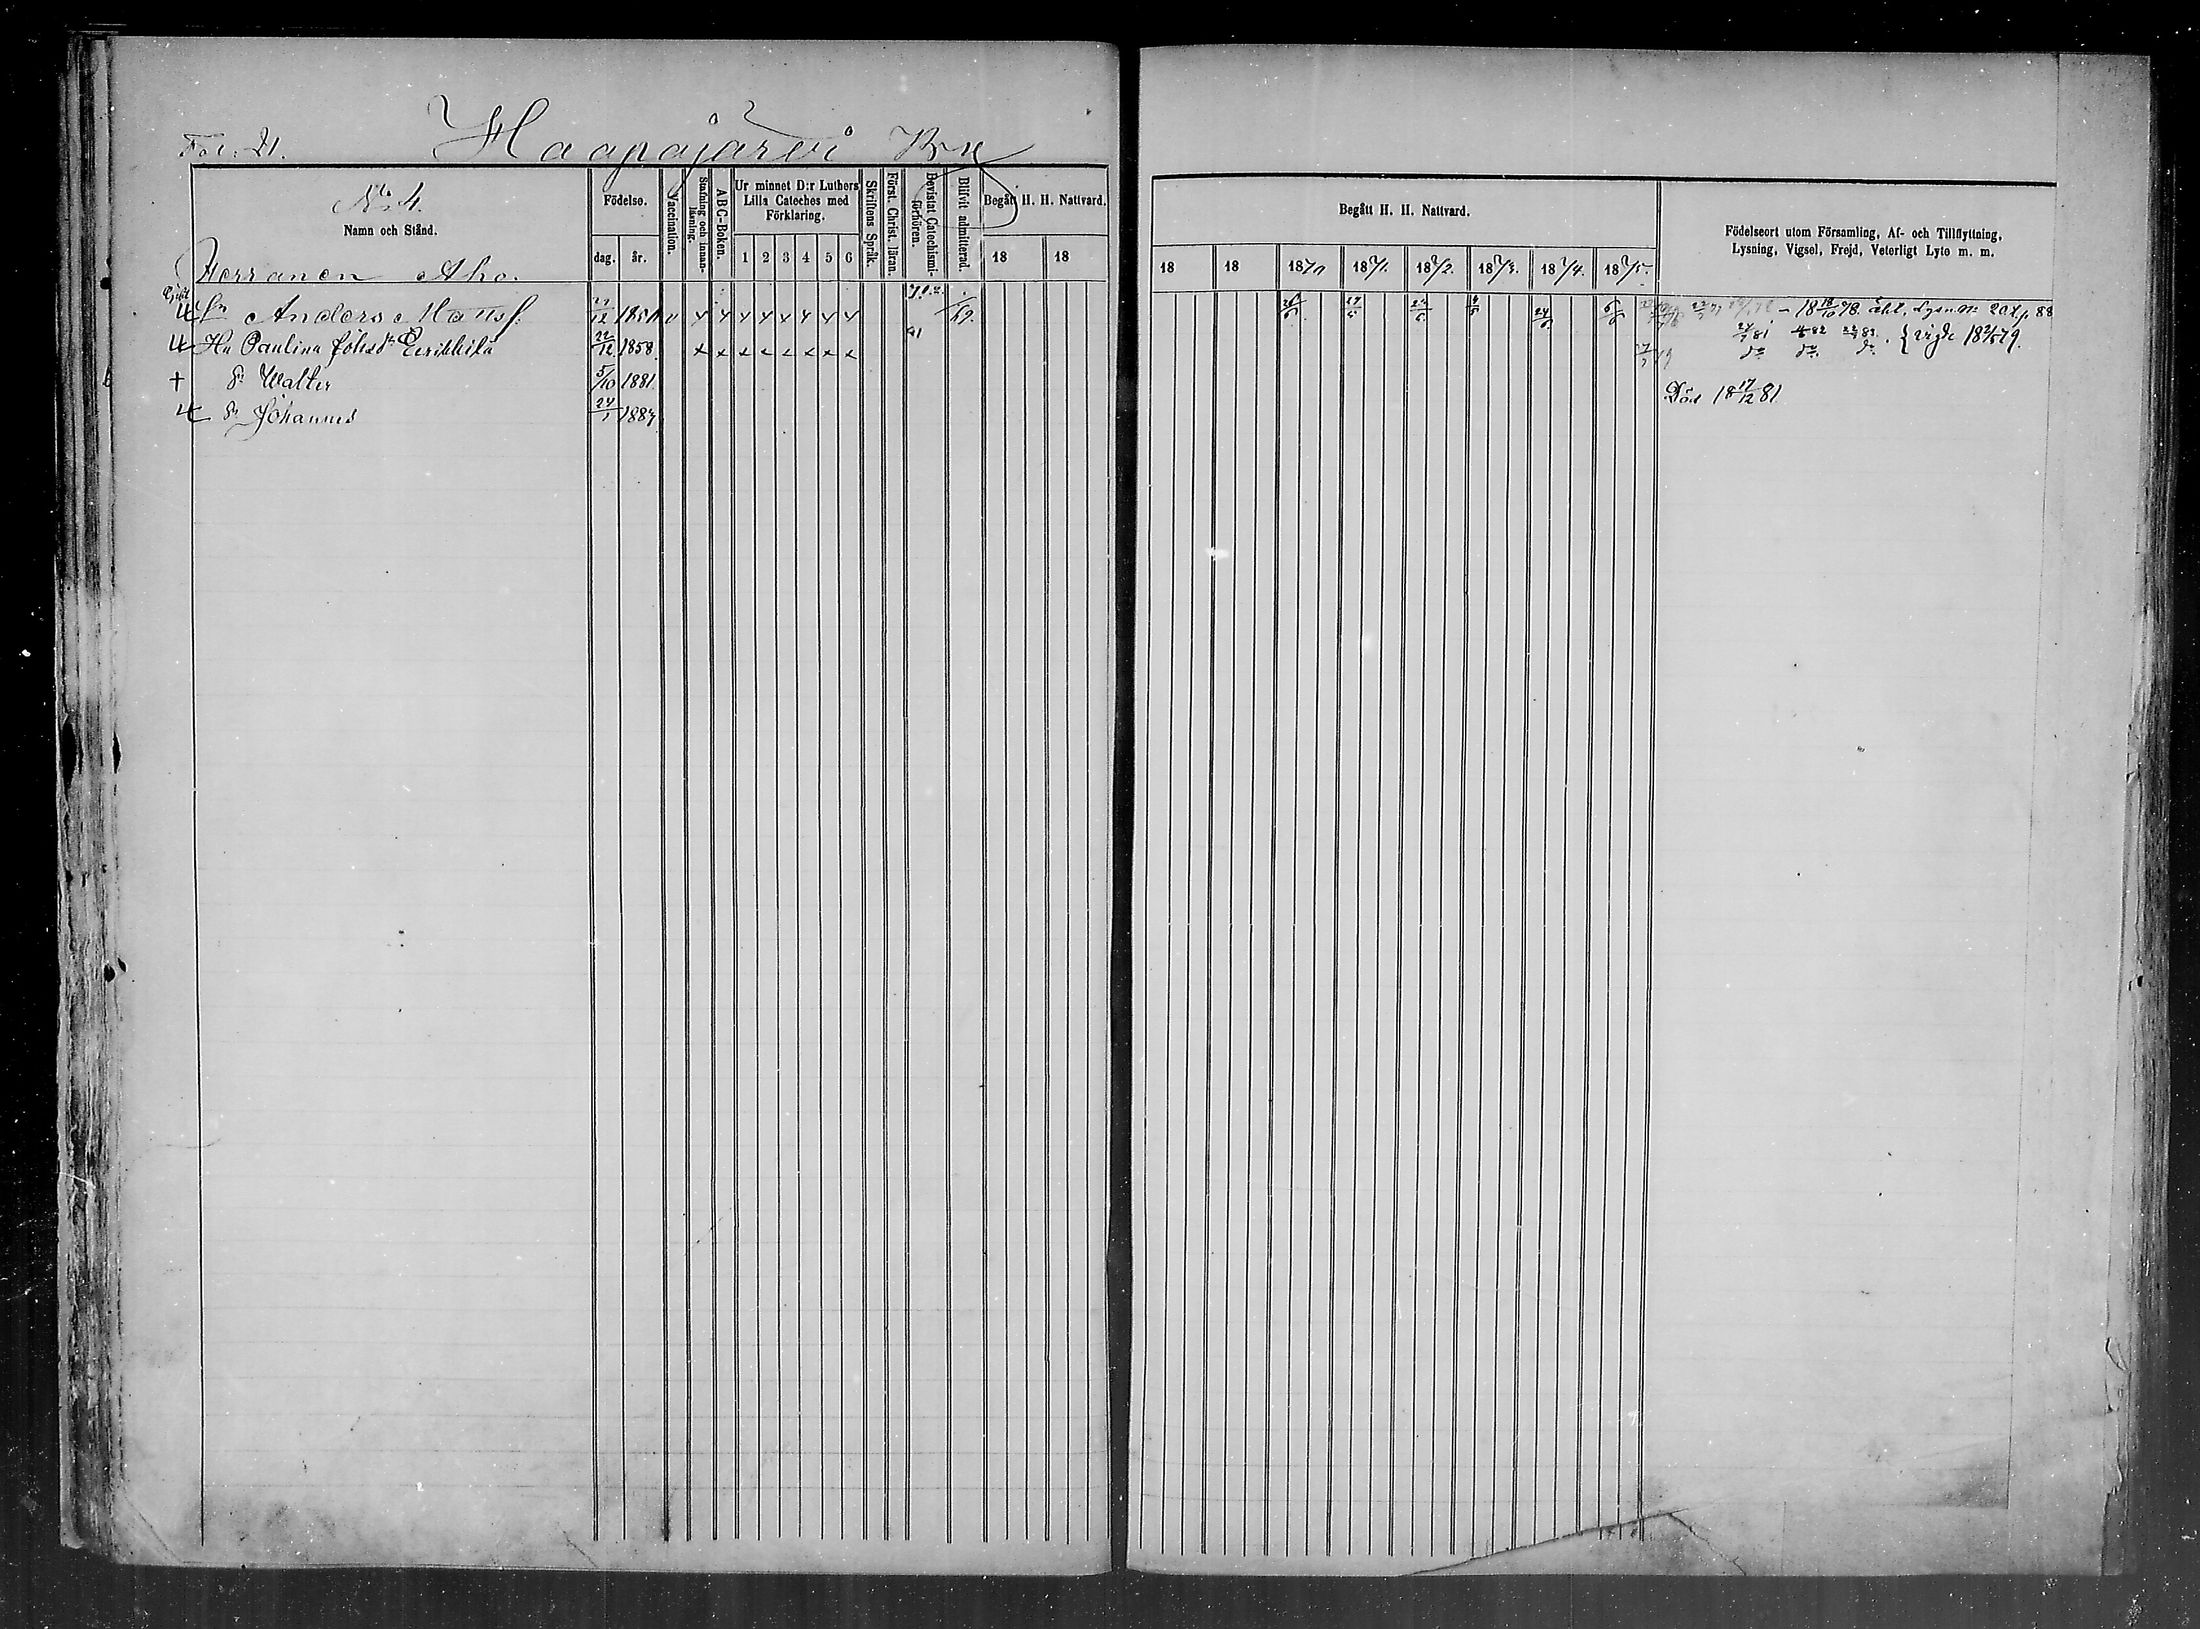 Fol. 21. Haapajärvi By
No 4.
Namn och Stånd.
Födelse.
dag. år.
Vaccination.
Stafning och innanläsning.
ABC-Boken.
Ur minnet D:r Luthers Lilla Cateches med Förklaring.
1 2 3 4 5 6
Skriftens Språk.
Först. Christ. läran.
Bevistat Catechismiförhören.
Blifvit admitterad.
Begått H. H. Nattvard.
18 18
Herranen Aho.
Anders Mattss. 1851 69.
Hu Paulina Johsdr Eerikkilä 22/12 1858. 81
† Sn Walter 5/10 1881.
Sn Johannes 24/1 1883
Begått H. H. Nattvard.
18 18 1870 1871. 1872. 1873. 1874. 1875.
Födelseort utom Församling, Af- och Tillflyttning,
Lysning, Vigsel, Frejd, Veterligt Lyte m. m.
24/6 6/6 18 18/10 78. 20 p. 88
vigde 18 2/5 79.
Död 18 17/12 81